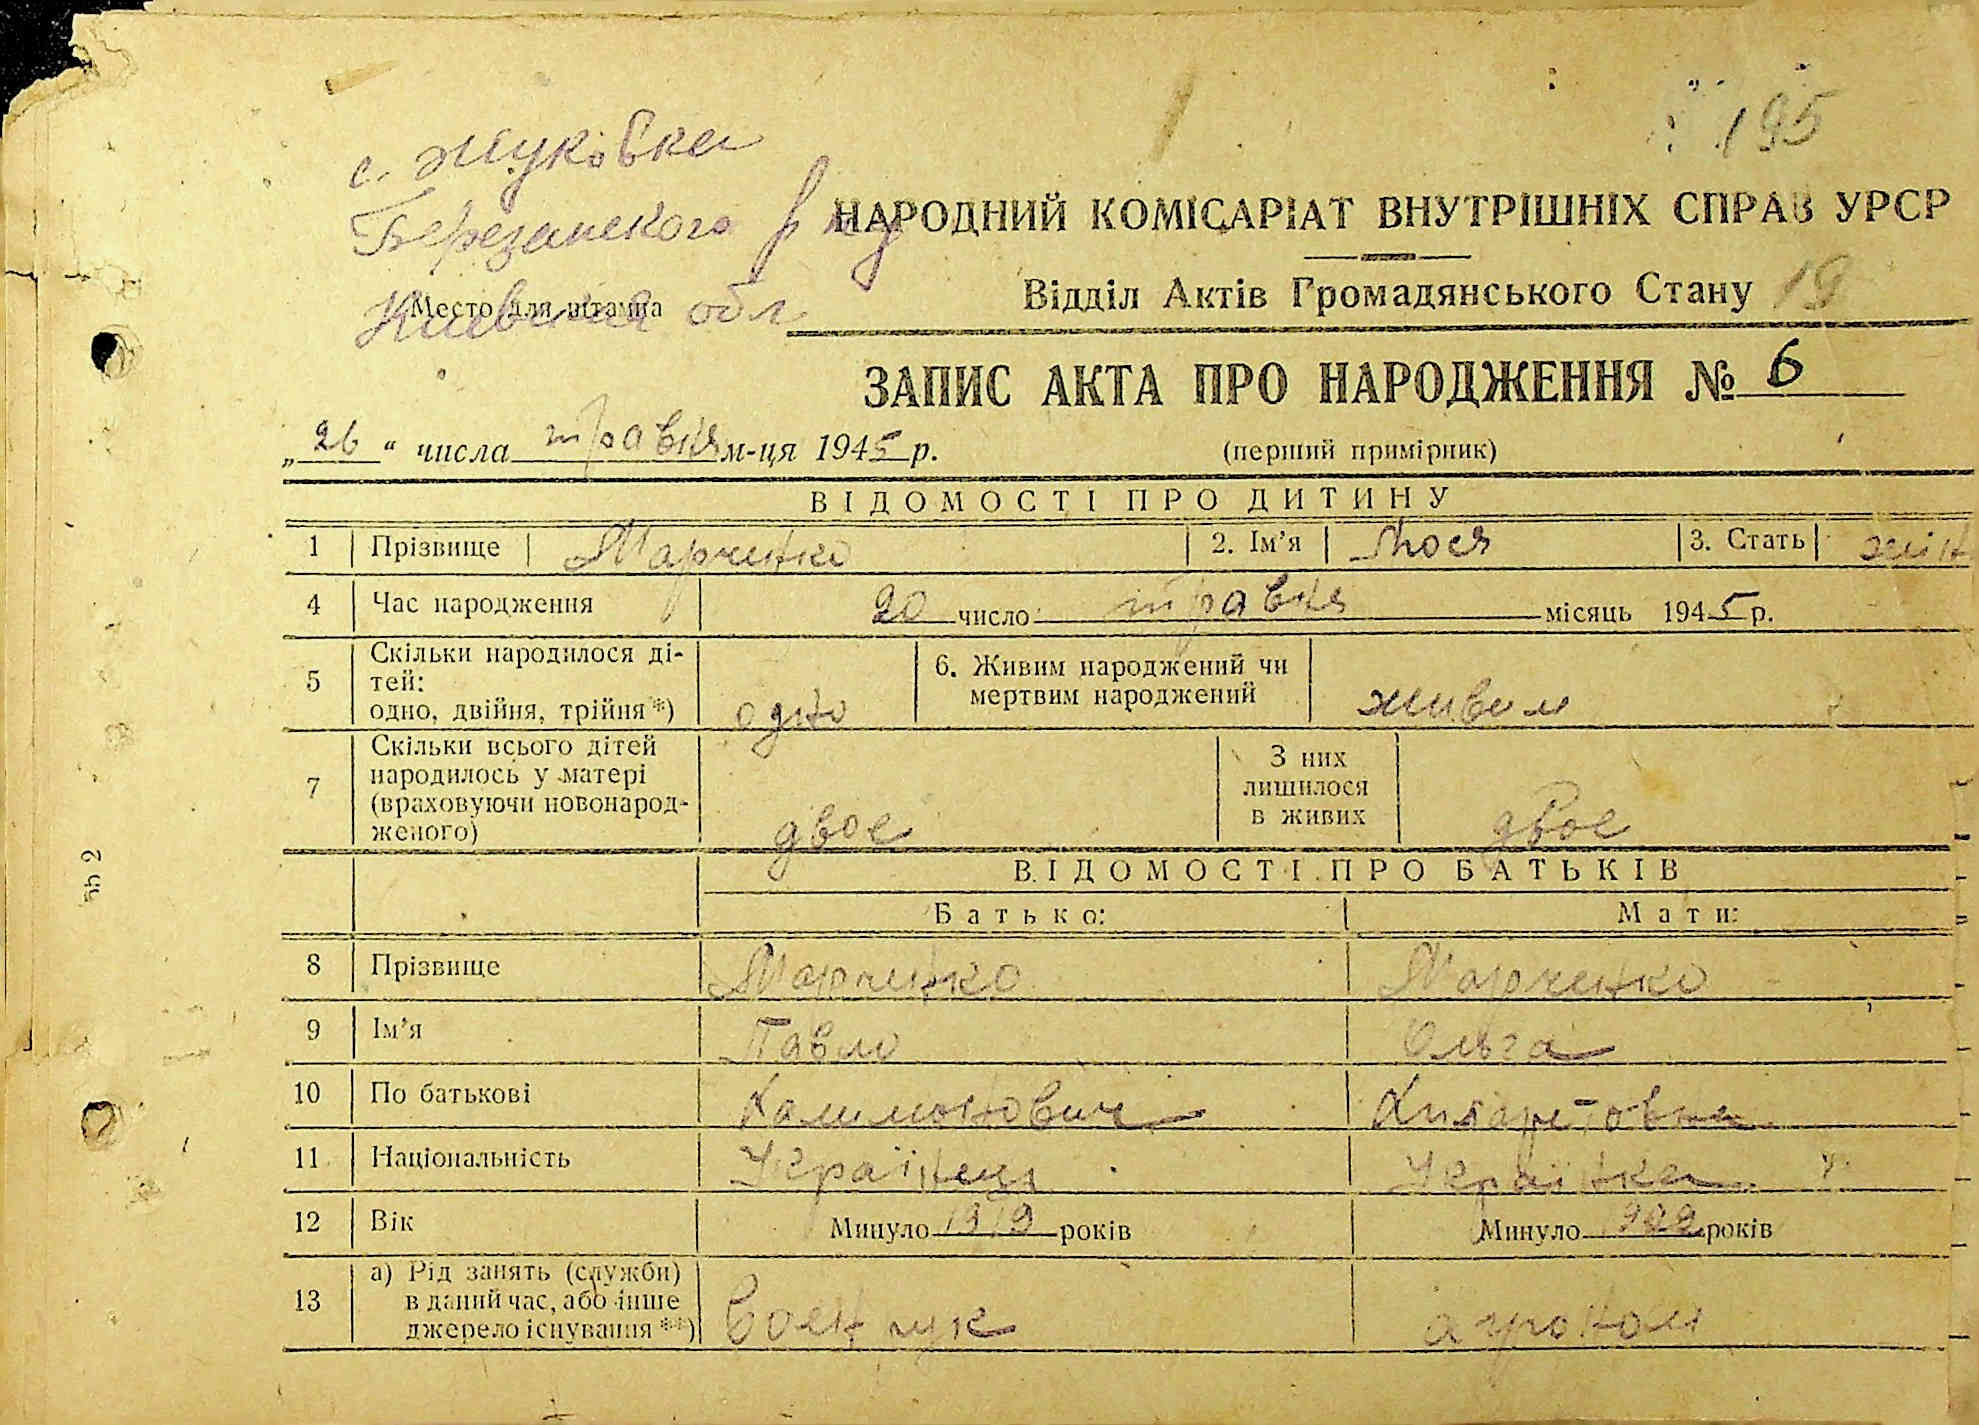 195
с. Жуковка
Березанского р-ну
Киевская обл.
Место для штампа
НАРОДНИЙ КОМІСАРІАТ ВНУТРІШНІХ СПРАВ УРСР
Відділ Актів Громадянського Стану 19
ЗАПИС АКТА ПРО НАРОДЖЕННЯ № 6
„26“ числа травня м-ця 1945 р. (перший примірник)
ВІДОМОСТІ ПРО ДИТИНУ
1 Прізвище Марченко 2. Ім’я Люся 3. Стать жін
4 Час народження 20 число травня місяць 1945 р.
5 Скільки народилося ді-
тей:
одно, двійня, трійня*) одно 6. Живим народжений чи
мертвим народжений живим
7 Скільки всього дітей
народилось у матері
(враховуючи новонарод-
женого) двоє З них
лишилося
в живих двоє
ВІДОМОСТІ ПРО БАТЬКІВ
Батько: Мати:
8 Прізвище Марченко Марченко
9 Ім’я Павло Ольга
10 По батькові
11 Національність Українець Українка
12 Вік Минуло 1919 років Минуло 1922 років
13 а) Рід занять (служби)
в даний час, або інше
джерело існування **) агроном